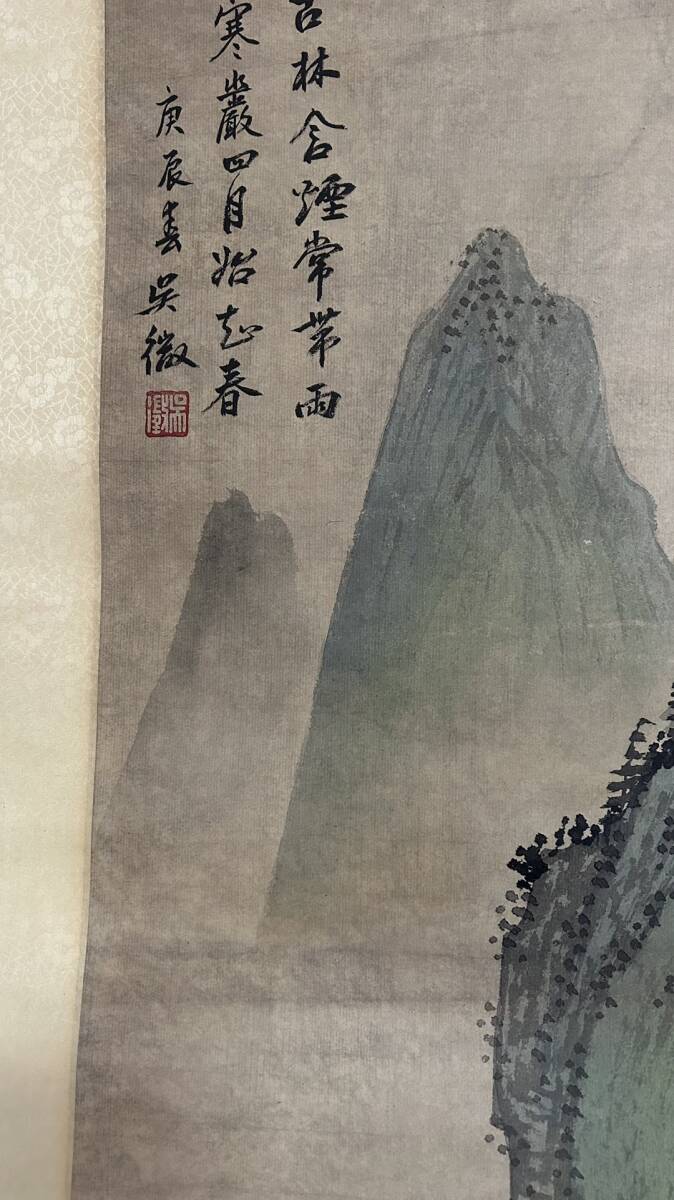 林含煙常帯雨
寒巖四月始知春
庚辰春吳徵
吳徵